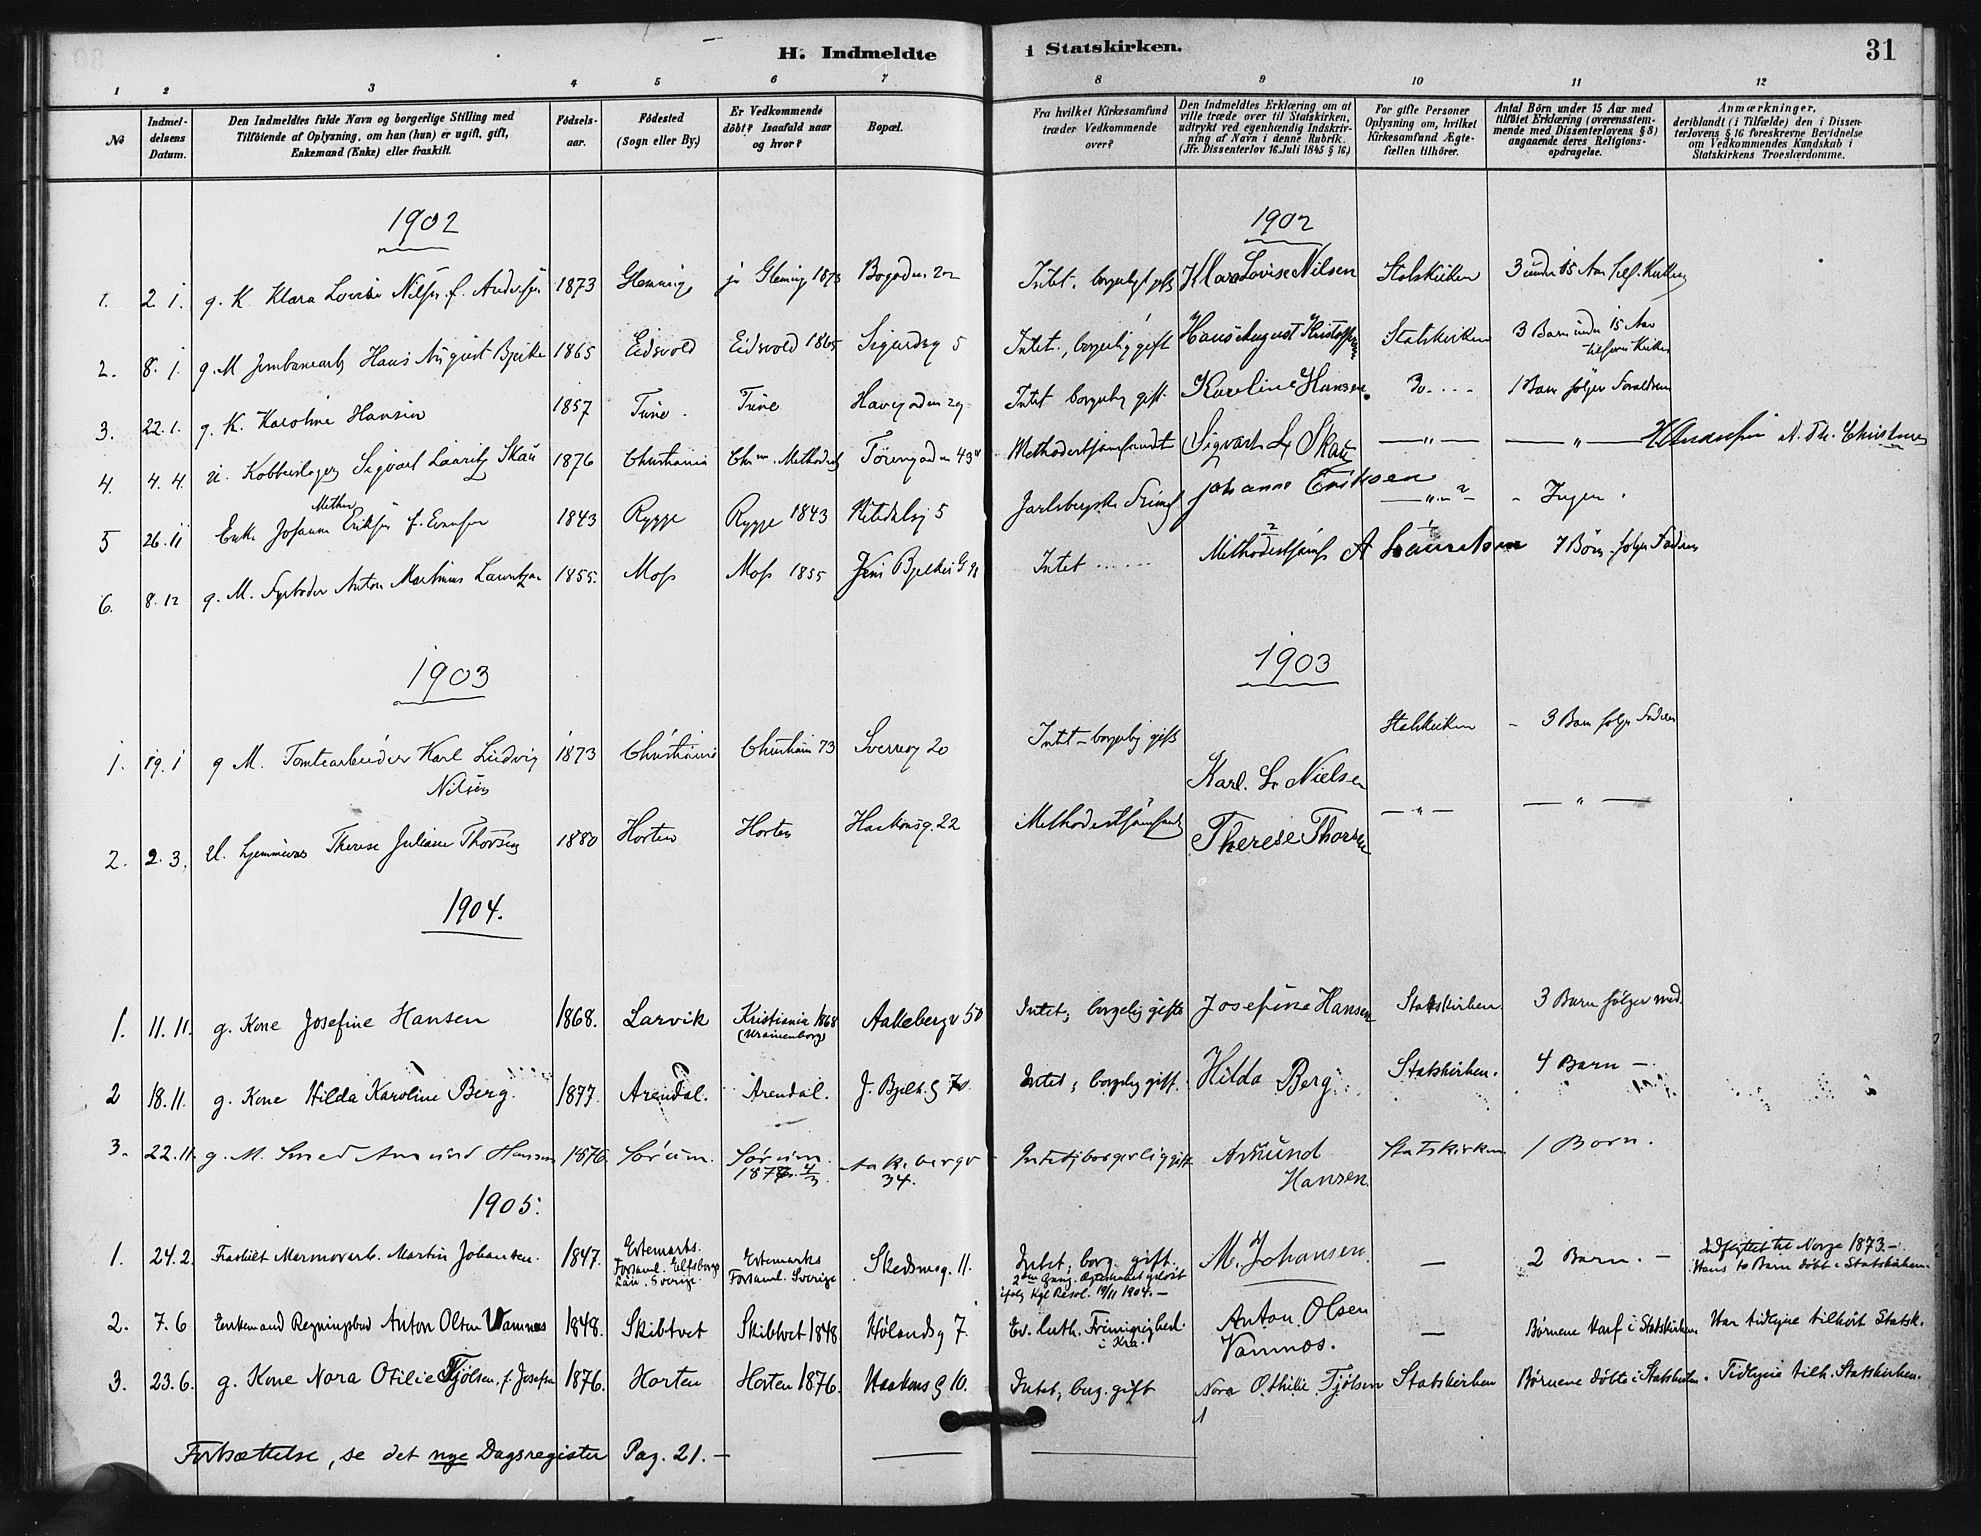 H. Indmeldte i Statskirken. 31
1 2 3 4 5 6 7 8 9 10 11 12
No
Indmel-
delsens
Datum.
Den Indmeldtes fulde Navn og borgerlige Stilling med
Tilføiende af Oplysning, om han (hun) er ugift, gift,
Enkemand (Enke) eller fraskilt.
Fødsels-
aar.
Fødested
(Sogn eller By.)
Er Vedkommende
døbt? Isaafald naar
og hvor?
Bopæl.
Fra hvilket Kirkesamfund
træder Vedkommende
over?
Den Indmeldtes Erklæring om at
ville træde over til Statskirken,
udtrykt ved egenhændig Indskriv-
ning af Navn i denne Rubrik.
(Jfr. Dissenterlov 16. Juli 1845 § 16)
For gifte Personer
Oplysning om, hvilket
Kirkesamfund Ægte-
fællen tilhører.
Antal Børn under 15 Aar med
tilføiet Erklæring (overensstem-
mende med Dissenterlovens § 8)
angaaende deres Religions-
opdragelse.
Anmærkninger,
deriblandt (i Tilfælde) den i Dissen-
terlovens § 16 foreskrevne Bevidnelse
om Vedkommendes Kundskab i
Statskirkens Troeslærdomme.
1902 1902
1. 2 1. g. K. Klara Lovise Nilsen f. Andersen 1873 Glemminge 1873 Intet, borgerligt Klara Lovise Nilsen Statskirken 3 under 15 Aar
2. 8. 1. g. M Hans August 1865 Eidsvold Eidsvold 1865 Sigurdsg 5 Intet, borgerlig gift Hans August Kristoffersen Statskirken 3 Barn under 15 Aar
3. 22. 1. g. K. Karoline Hansen 1857 Tune Tune Havegaden 29 Intet borgerlig gift. Karoline Hansen. Do. 1 Barn følger Forældrene
4. 4. 4. u. Kobberslager Sigvart Lauritz Skau 1876 Christiania Methodist Methodistsamfundet Sigvart L. Skau — " — — " — Christensen
5 26. 11 Enke Johanne Mathea Eriksen f. Evensen 1843 Rygge Rygge 1843 Nitedalsg 5 Jarlsbergske Frimgh Johanne Eriksen — " — Ingen.
6. 8. 12 g. M. Fyrbøder Anton Martinius Lauritzen 1855. Moss Moss 1855 Jens Bjelkes G Intet Methodistsamf A Lauretsen 7 Børn følger Faderen
1903 1903
1. 19. 1 g M. Tomtearbeider Karl Ludvig
Nilsen 1873 Christiania Christiania 73 Sverresg 20 Intet - borgerlig gift Karl. L. Nielsen Statskirken 3 Barn følger Faderen
2. 2. 3. U. Therese Juliane Thorsen 1880 Horten Horten Haakonsg. 22 Methodistsamfundet Therese Thorsen — " — — " —
1904.
1. 11. 11. g. Kone Josefine Hansen 1868. Larvik Kristiania 1868
(Uranienborg) Aakebergv 50 Intet; borgelig gift Josefine Hansen Statskirken. 3 Barn følger med.
2 18. 11. g. Kone Hilda Karoline Berg. 1877. Arendal. Arendal. J. Bjelk. g 70 Intet; borgelig gift. Hilda Berg. Statskirken. 4 Barn —
3. 22. 11. g. M. Smed Amund Hansen 1876. Sørum. Sørum.
Aakebergv
34. Intet; borgerlig gift Amund
Hansen. Statskirken 1 Barn.
1905.
1. 24. 2. Fraskilt Marmorarb. Martin Johansen. 1847. Evtemarks
Forsaml. Elfsborgs
Län. Sverige. Evtemarks
Forsaml. Sverige Skedsmog. 11. Intet; borg. gift.
2den Gang. Ægteskabet opløst
ifølg Kgl Resol. 19/11 1904. — M. Johansen — 2 Barn. — Indflyttet til Norge 1873. —
Hans to Barn døbt i Statskirken.
2. 7. 6 Enkemand Regningsbud Anton Olsen Vamnos 1848. Skibtvet Skibtvet 1848 Hølandsg 7. Ev. luth. Frimenighed
i Kra. Anton Olsen
Vamnos. — Børnene Konf i Statskirken Har tidligere tilhørt Statsk.
3. 23. 6. g. Kone Nora Otilie Tjølsen, f. Josefsen 1876. Horten Horten 1876. Haakons g 10. Intet; borg. gift Nora Othilie Tjølsen Statskirken Børnene døbte i Statskirken. Tidligere tilh. Statskirken.
Fortsættelse, se det nye Dagsregister Pag. 21. —